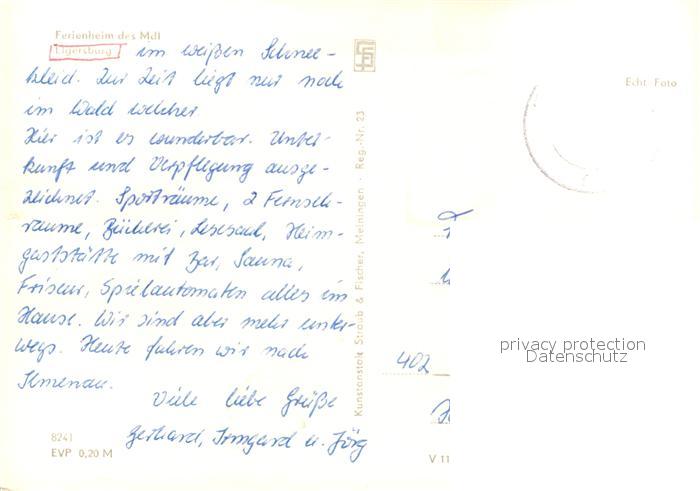 Ferienheim des MdI
Elgersburg im weißen Schnee-
kleid. Zur Zeit liegt nur noch
im Wald welcher.
Hier ist es wunderbar. Unter-
kunft und Verpflegung ausge-
zeichnet. Sporträume, 2 Fernseh-
räume, Bücherei, Lesesaal, Heim-
gaststätte mit Bar, Sauna,
Friseur, Spielautomaten alles im
Hause. Wir sind aber mehr unter-
wegs. Heute fahren wir nach
Ilmenau.
Viele liebe Grüße
Gerhard, Irmgard u. Jörg
8241
EVP 0,20 M
Kunstanstalt Straub & Fischer, Meiningen · Reg.-Nr. 23
Echt Foto
402
V 11
privacy protection
Datenschutz